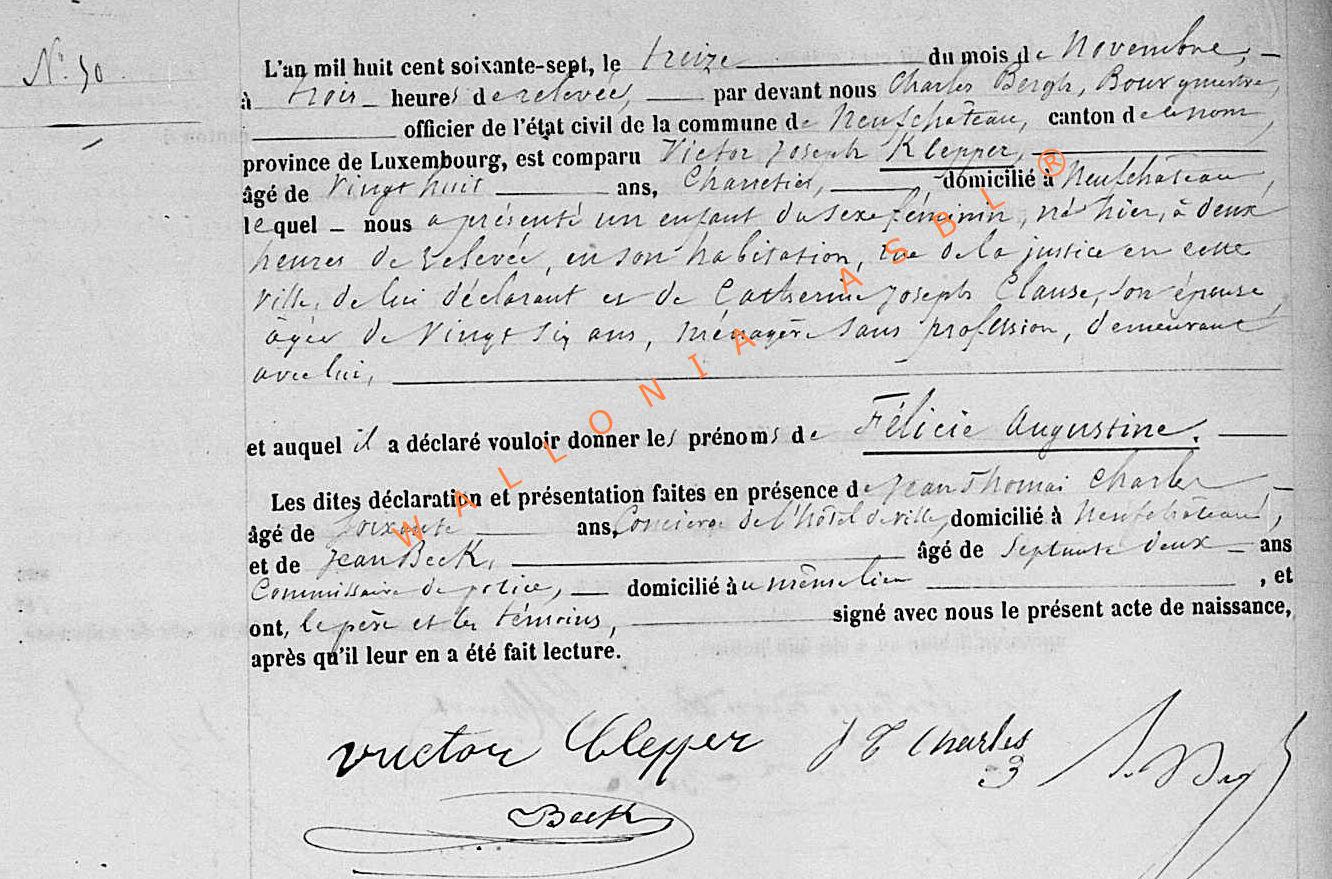 N° 50
L'an mil huit cent soixante-sept, le treize du mois de Novembre,
à trois heures de relevée, par devant nous Charles Bergh, Bourgmestre,
officier de l'état civil de la commune de Neufchâteau, canton de ce nom,
province de Luxembourg, est comparu Victor Joseph Klepper,
âgé de vingt huit ans, Charretier, domicilié à Neufchâteau,
lequel nous a présenté un enfant du sexe féminin, né hier, à deux
heures de relevée, en son habitation, rue de la justice en cette
ville, de lui déclarant et de Catherine Joseph Clause, son épouse,
âgée de vingt six ans, ménagère sans profession, demeurant
avec lui,
et auquel il a déclaré vouloir donner les prénoms de Félicie Augustine.
Les dites déclaration et présentation faites en présence de Jean Thomas Charles,
âgé de soixante ans, Concierge de l'hôtel de ville, domicilié à Neufchâteau,
et de Jean Beck, âgé de septante deux ans
Commissaire de police, domicilié au même lieu, et
ont, le père et les témoins, signé avec nous le présent acte de naissance,
après qu'il leur en a été fait lecture.
WALLONIA ASBL ®
Victor Clepper J T Charles
Beck